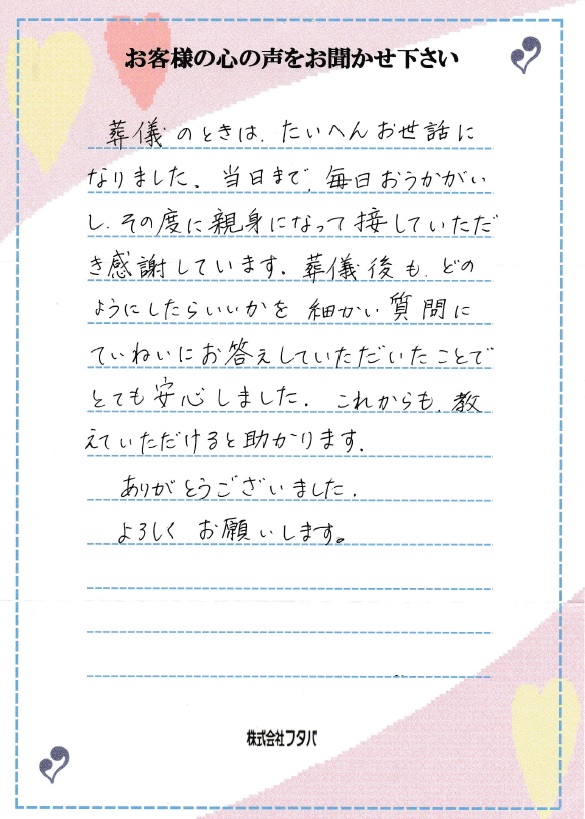 お客様の心の声をお聞かせ下さい
葬儀のときは、たいへんお世話に
なりました。当日まで、毎日おうかがい
し、その度に親身になって接していただ
き感謝しています。葬儀後も、どの
ようにしたらいいかを 細かい質問に
ていねいにお答えしていただいたことで
とても安心しました。これからも、教
えていただけると助かります。
ありがとうございました。
よろしく お願いします。
株式会社フタバ